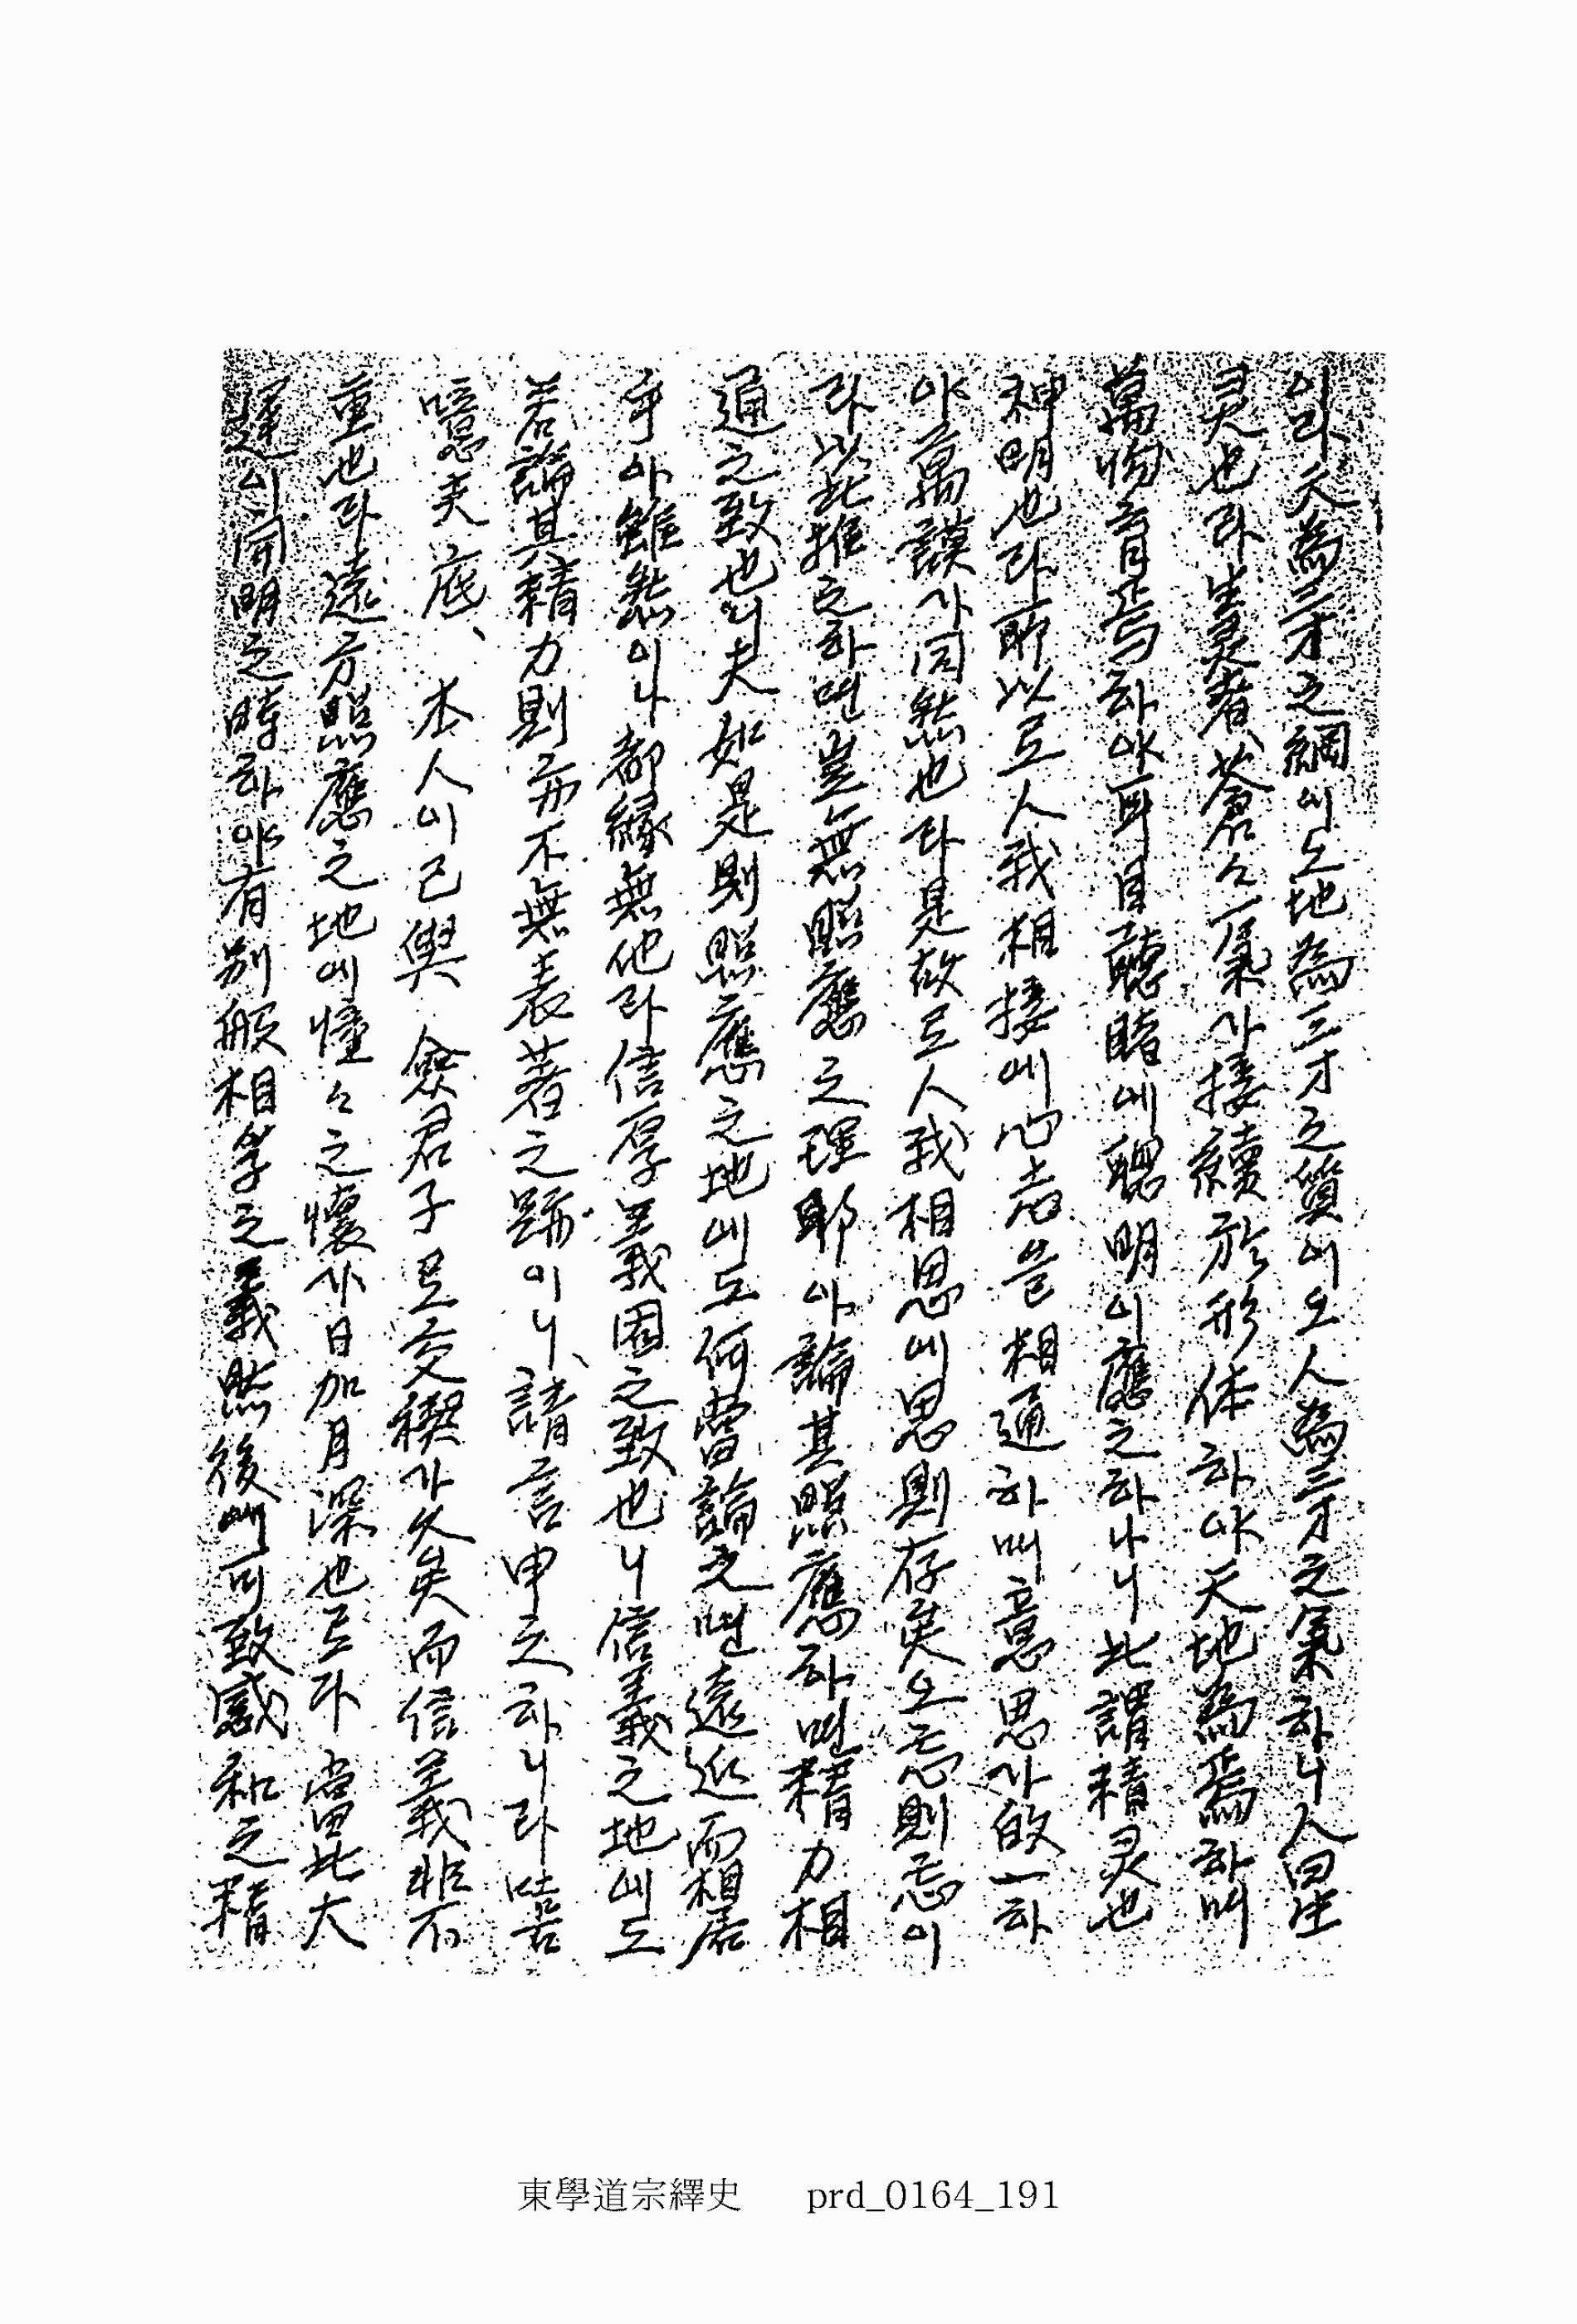 이라 天為三才之綱이오 地為三才之質이오 人為三才之氣하니 人曰生
灵也라 生灵者 蒼々一氣가 接續於形体하야 天地為焉하며
萬物育焉하야 耳目聽睹에 聰明이 應之하나니 此謂精灵也
神明也라 所以로 人我相接에 心志 相通하며 意思가 的一하
야 萬謨가 同然也라 是故로 人我相思에 思則存矣오 忘則忘이
라 以此推之하면 豈無照應之理耶아 論其照應하면 精力相
通之致也니 夫如是則照應之地에도 何嘗論之면 遠近而相居
乎아 雖然이나 都緣無他라 信厚義固之致也니 信義之地에도
若論其精力則亦不無表著之跡이니、請言申之하니라 唔
噫 夫 底、本人이 已與 僉君子로 交襖가 久矣而信義非不
重也라 遠方照應之地에 憧々之懷가 日加月深也로다 當此大
運이 開明之時하야 有別般相孚之義然後에 可致感和之精
東學道宗繹史 prd_0164_191